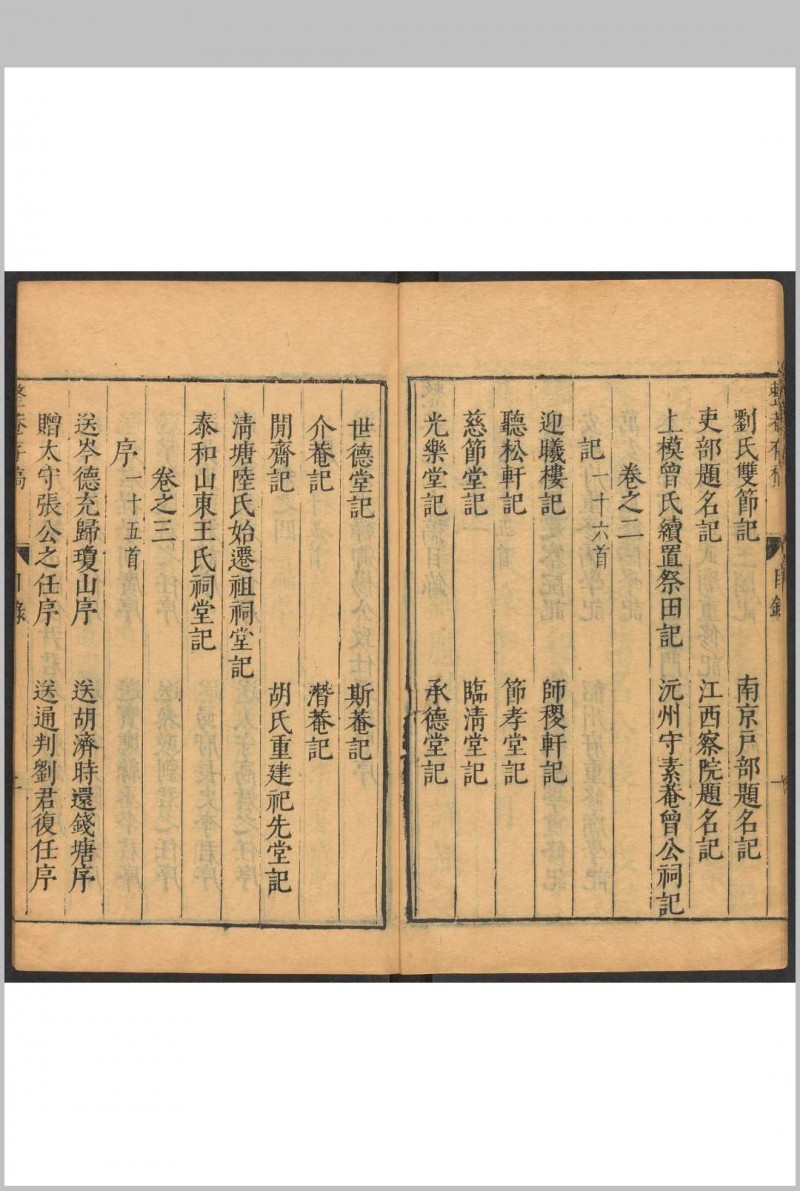 劉氏雙節記 南京戶部題名記
吏部題名記 江西察院題名記
上模曾氏續置祭田記 沅州守素菴曾公祠記
卷之二
記一十六首
迎曦樓記 師稷軒記
聽松軒記 節孝堂記
慈節堂記 臨清堂記
光樂堂記 承德堂記
世德堂記 斯菴記
介菴記 潛菴記
閒齋記 胡氏重建祀先堂記
清塘陸氏始遷祖祠堂記
泰和山東王氏祠堂記
卷之三
序一十五首
送岑德充歸瓊山序 送胡濟時還錢塘序
贈太守張公之任序 送通判劉君復任序
目錄